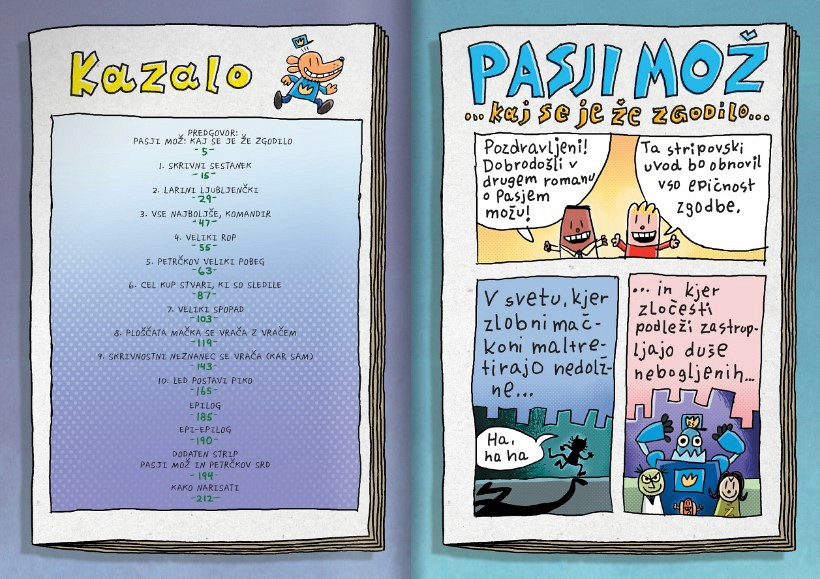 Kazalo
PREDGOVOR:
PASJI MOŽ: KAJ SE JE ŽE ZGODILO
-5-
1. SKRIVNI SESTANEK
-15-
2. LARINI LJUBLJENČKI
-29-
3. VSE NAJBOLJŠE, KOMANDIR
-47-
4. VELIKI ROP
-55-
5. PETRČKOV VELIKI POBEG
-63-
6. CEL KUP STVARI, KI SO SLEDILE
-87-
7. VELIKI SPOPAD
-103-
8. PLOŠČATA MAČKA SE VRAČA Z VRAČEM
-119-
9. SKRIVNOSTNI NEZNANEC SE VRAČA (KAR SAM)
-143-
10. LED POSTAVI PIKO
-165-
EPILOG
-185-
EPI-EPILOG
-190-
DODATEN STRIP
PASJI MOŽ IN PETRČKOV SRD
-194-
KAKO NARISATI
-212-
PASJI MOŽ
...kaj se je že zgodilo...
Pozdravljeni!
Dobrodošli v
drugem romanu
o Pasjem
možu!
Ta stripovski
uvod bo obnovil
vso epičnost
zgodbe.
V svetu, kjer
zlobni mač-
koni maltre-
tirajo nedolž-
ne...
Ha,
ha ha
... in kjer
zločesti
podleži zastrup-
ljajo duše
nebogljenih...